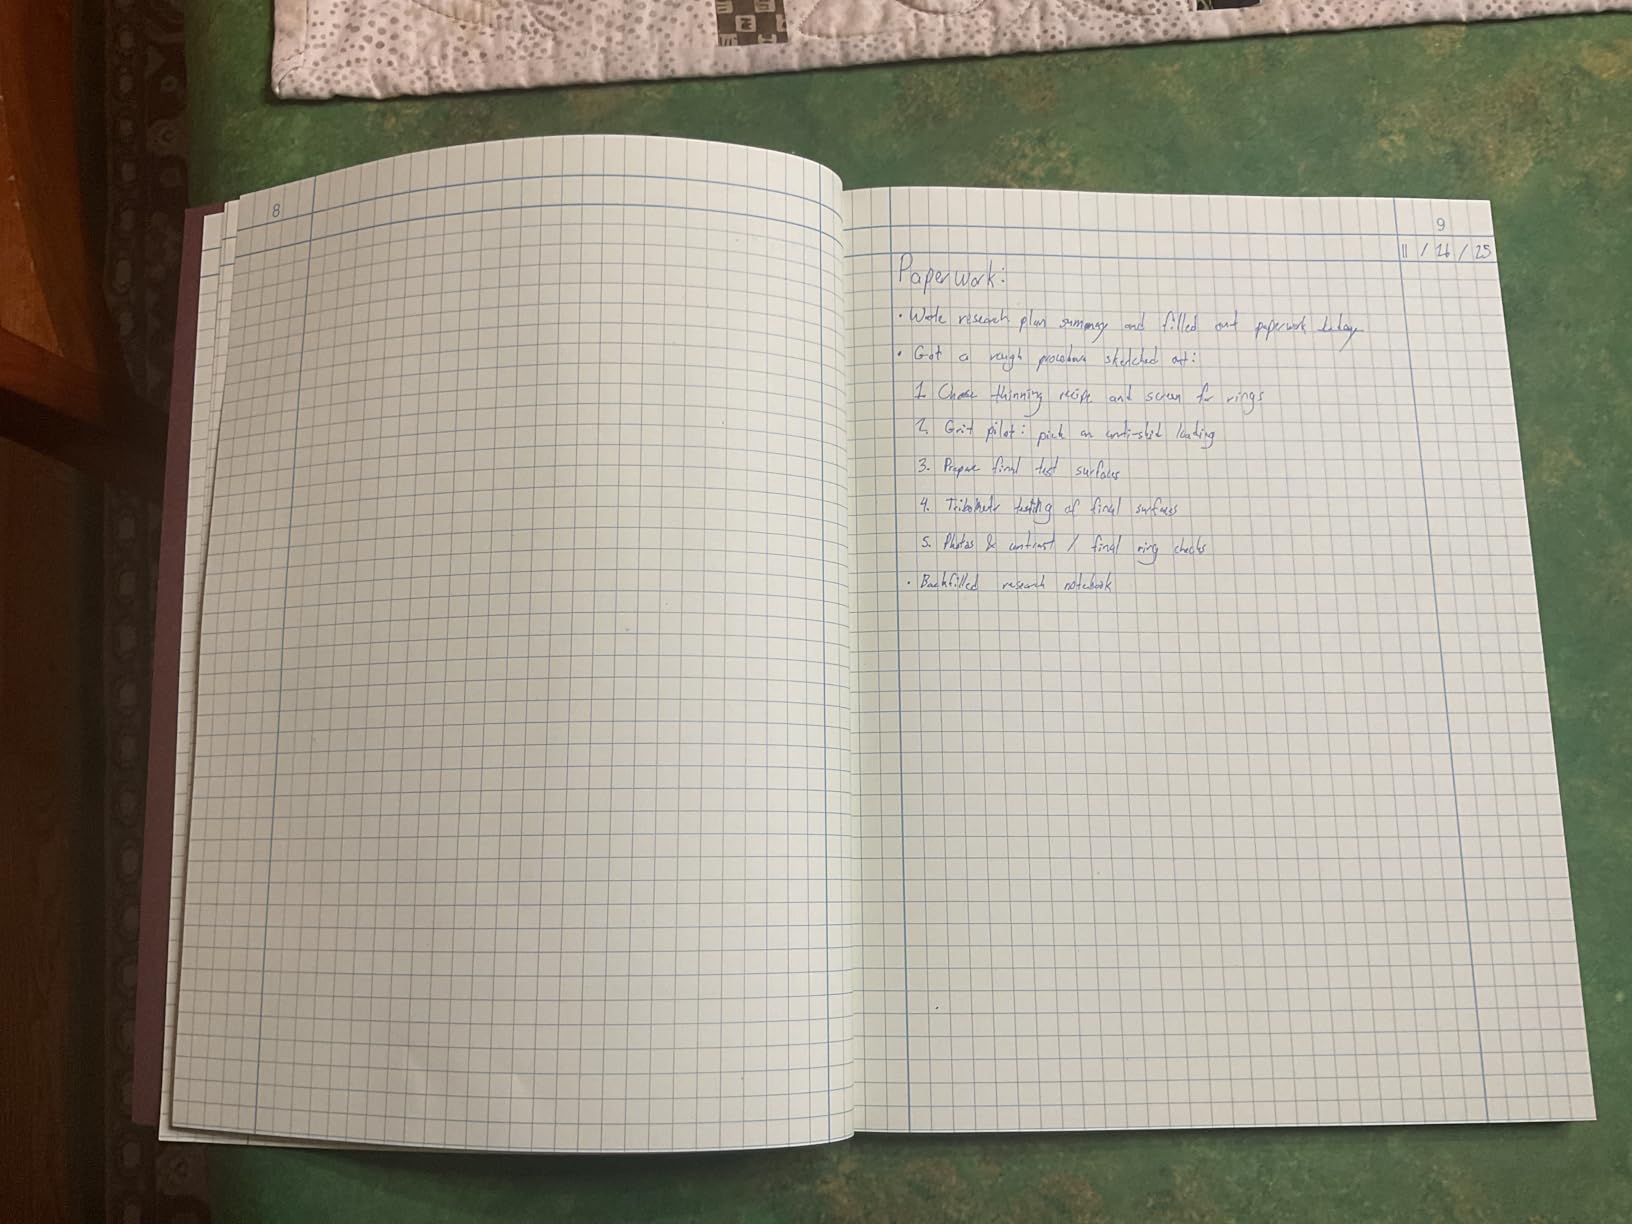 8
9
11 / 26 / 25
Paperwork:
· Wrote research plan summary and filled out paperwork today
· Got a rough procedure sketched out:
1. Choose thinning recipe and screen for rings
2. Grit pilot: pick an anti-skid loading
3. Prepare final test surfaces
4. Tribometer testing of final surfaces
5. Photos & contrast / final ring checks
· Backfilled research notebook